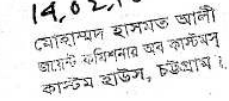 14,02,
মোহাম্মদ হাসমত আলী
জয়েন্ট কমিশনার অব কাস্টমস্
কাস্টম হাউস, চট্টগ্রাম।